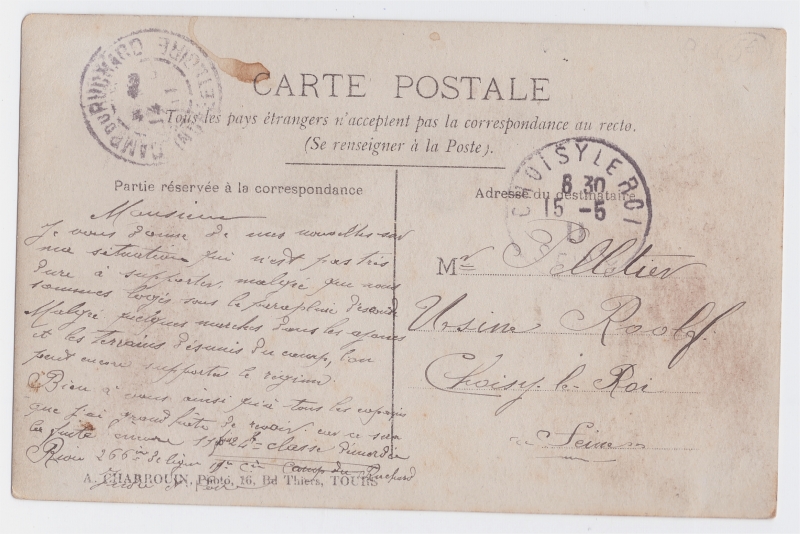 CARTE POSTALE
Tous les pays étrangers n'acceptent pas la correspondance au recto.
(Se renseigner à la Poste).
CAMP DU RUCHARD INDRE ET LOIRE
CHOISY LE ROI
8 30
15 -5
Partie réservée à la correspondance
Adresse du destinataire
Monsieur
Je vous donne de mes nouvelles sur
ma situation qui n'est pas très
dure à supporter, malgré que nous
sommes logés sous le parapluie
Malgré quelques marches dans les ajoncs
et les terrains du camp, l'on
peut encore supporter le régime
Bien à vous ainsi qu'à tous les copains
que j'ai grand hâte de revoir. car ce sera
encore 2e classe
266e de ligne Cie Camp du Ruchard
Indre et Loire
Mr
Usine
Choisy-le-Roi
Seine
A. CHARROUIN, Photo, 16, Bd Thiers, TOURS